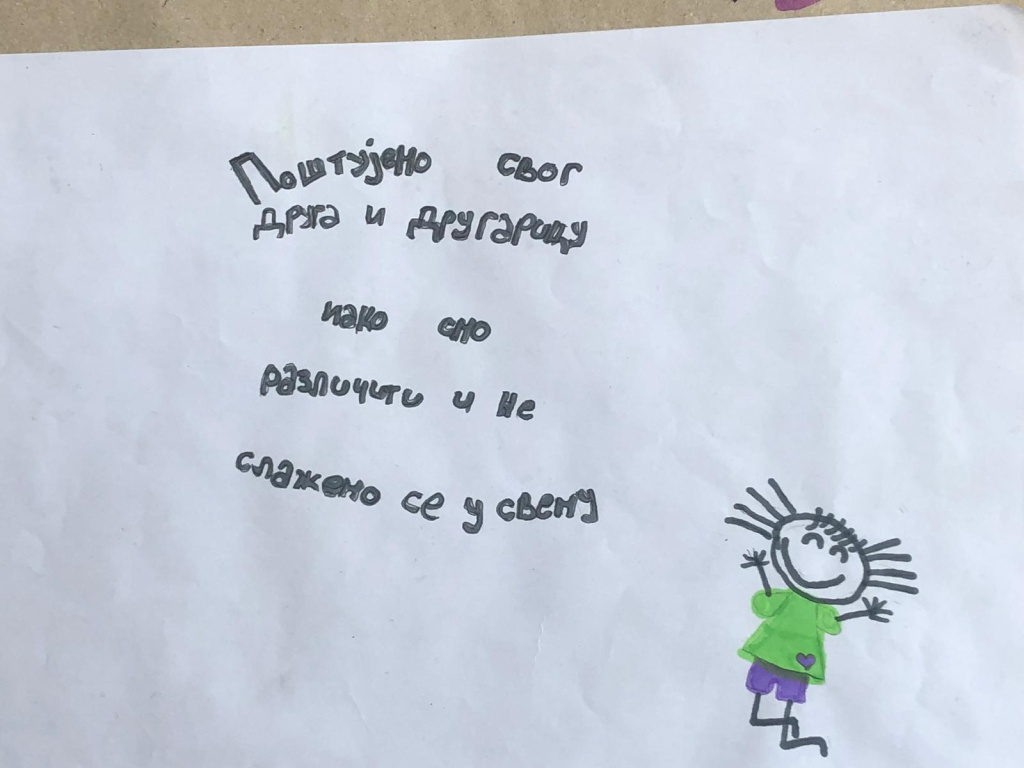 Поштујемо свог
друга и другарицу
иако смо
различити и не
слажемо се у свему